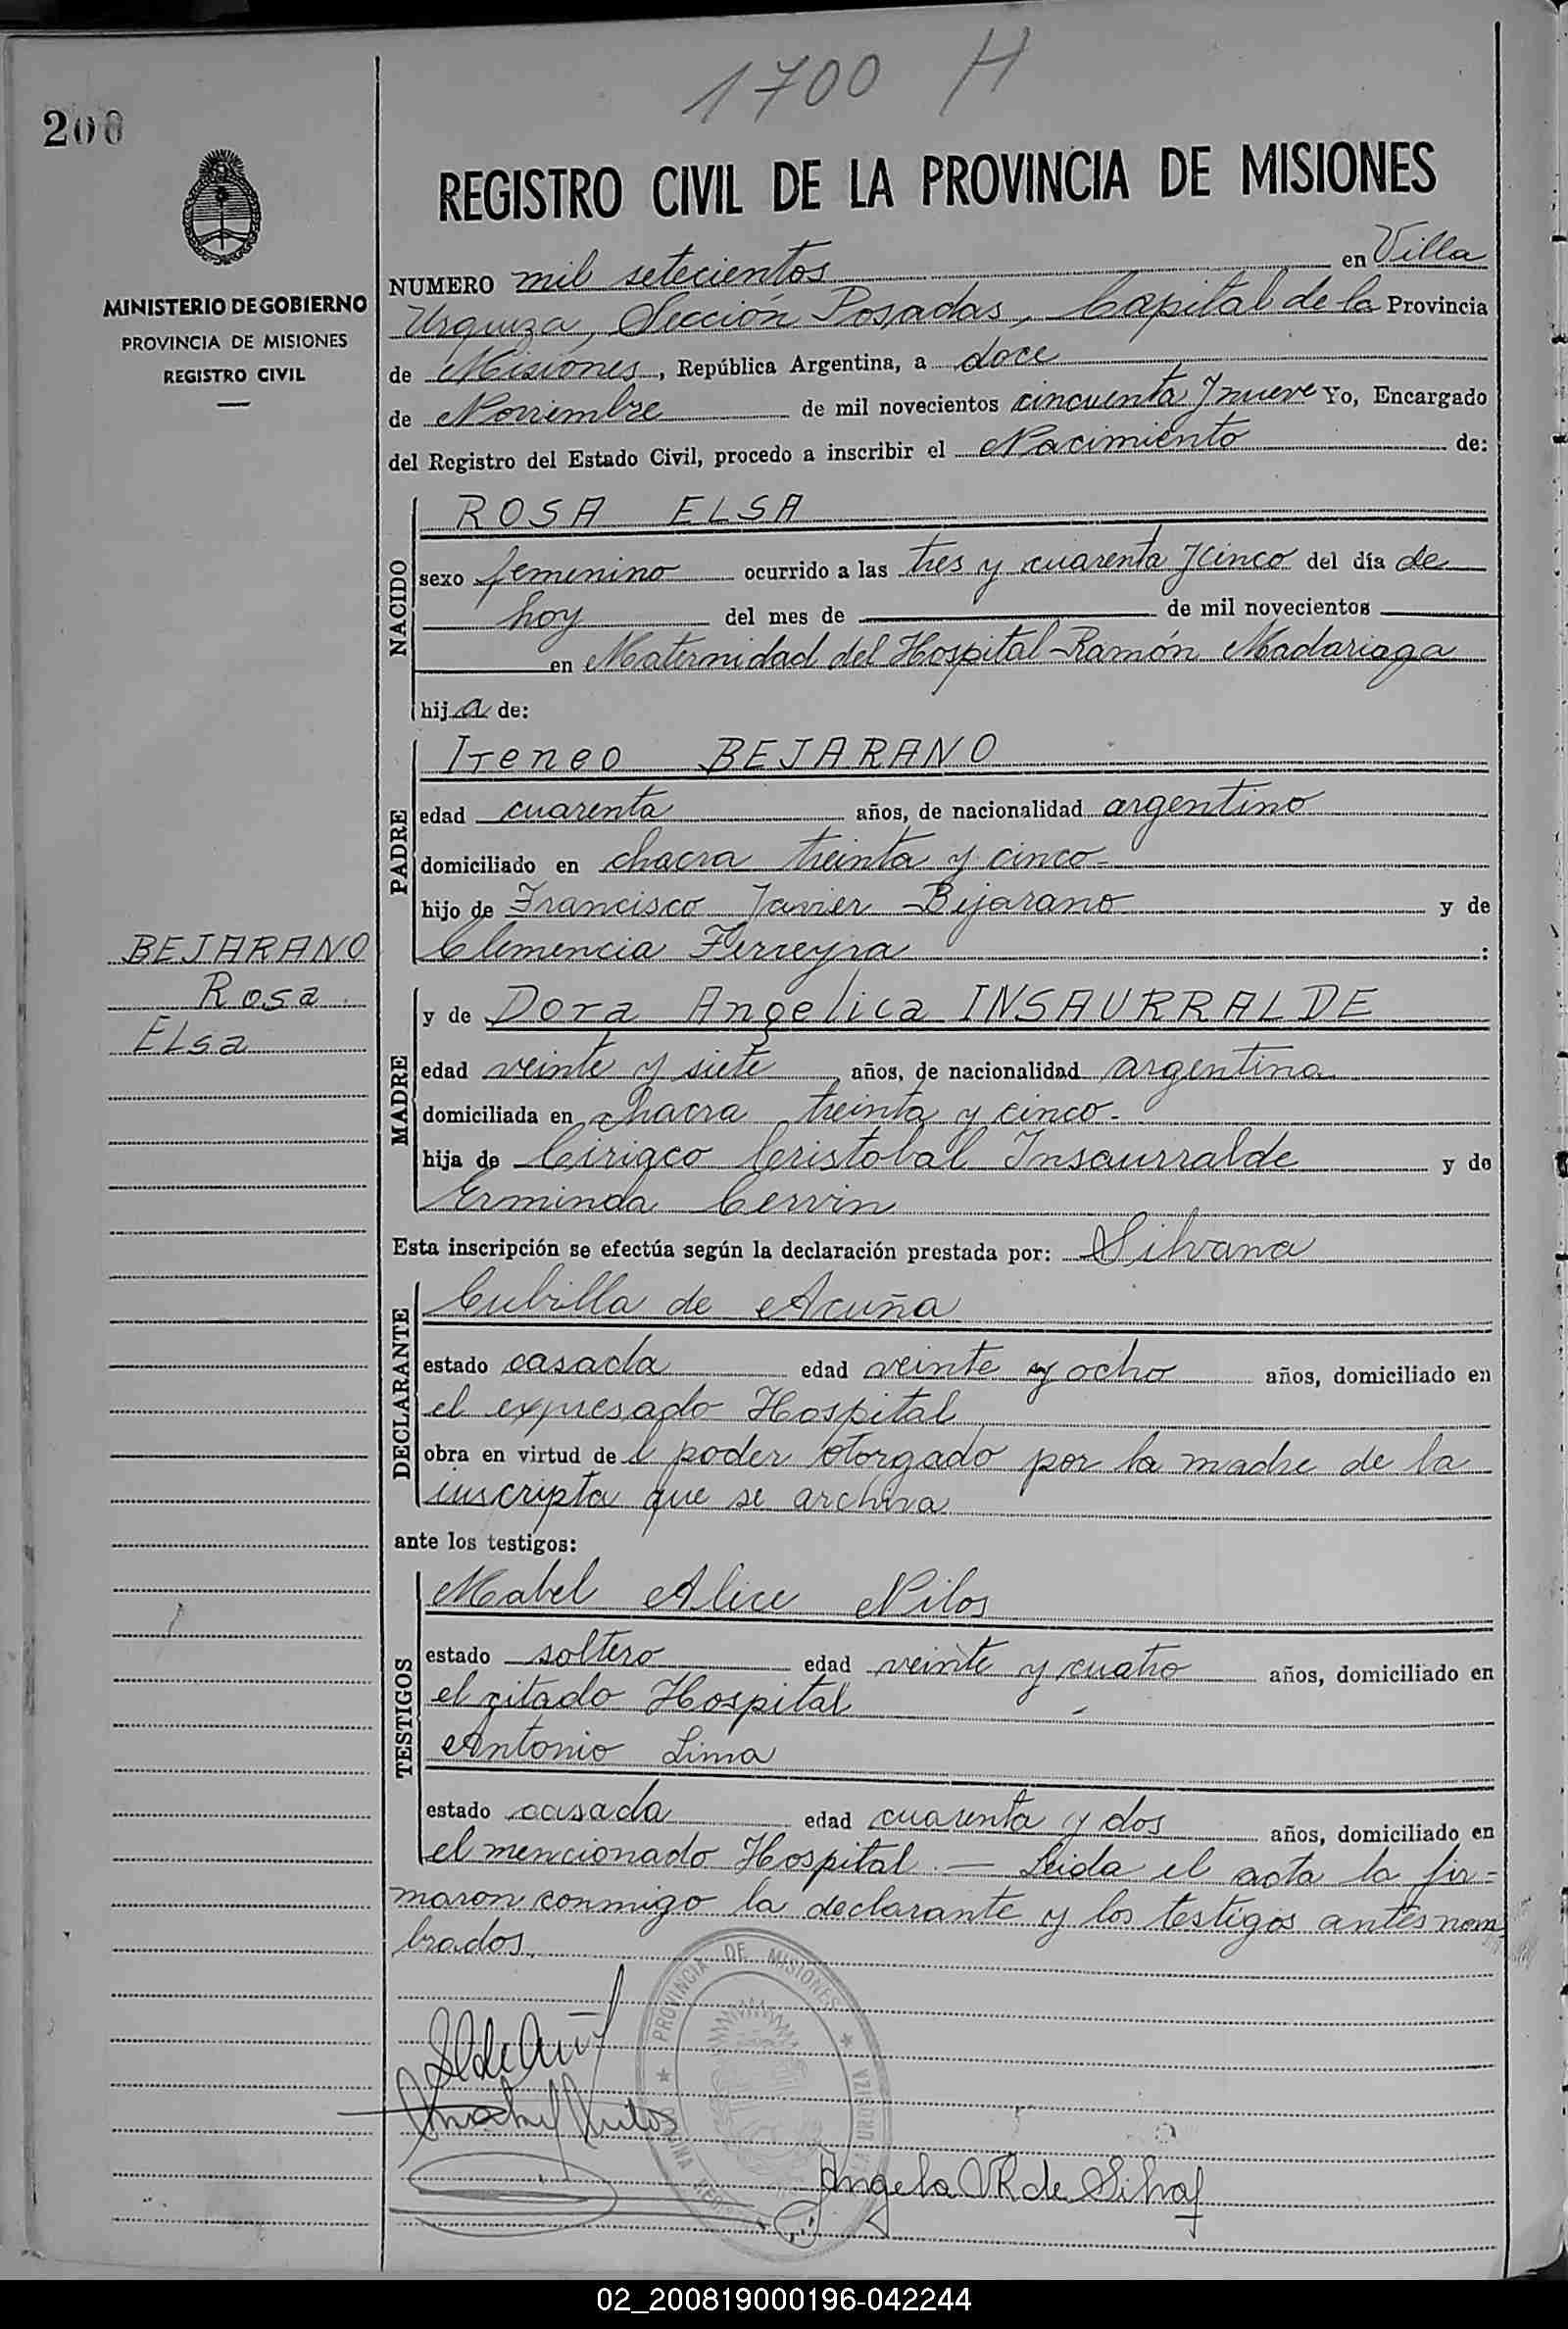 1700 H
200
MINISTERIO DE GOBIERNO
PROVINCIA DE MISIONES
REGISTRO CIVIL
REGISTRO CIVIL DE LA PROVINCIA DE MISIONES
NUMERO mil setecientos en Villa
Urquiza, Sección Posadas, Capital de la Provincia
de Misiones, República Argentina, a doce
de Noviembre de mil novecientos cincuenta y nueve Yo, Encargado
del Registro del Estado Civil, procedo a inscribir el Nacimiento de:
NACIDO
ROSA ELSA
sexo femenino ocurrido a las tres y cuarenta y cinco del día de
hoy del mes de de mil novecientos
en Maternidad del Hospital Ramón Madariaga
hija de:
PADRE
Ireneo BEJARANO
edad cuarenta años, de nacionalidad argentino
domiciliado en chacra treinta y cinco-
hijo de Francisco Javier Bejarano y de
Clemencia Ferreyra :
BEJARANO
Rosa
Elsa
MADRE
y de Dora Angelica INSAURRALDE
edad veinte y siete años, de nacionalidad argentina
domiciliada en chacra treinta y cinco-
hija de Ciriaco Cristobal Insaurralde y de
Erminda Cervin
Esta inscripción se efectúa según la declaración prestada por: Silvana
DECLARANTE
Cubilla de Acuña
estado casada edad veinte y ocho años, domiciliado en
el expresado Hospital
obra en virtud del poder otorgado por la madre de la
inscripta que se archiva
ante los testigos:
TESTIGOS
Mabel Alice Nilos
estado soltero edad veinte y cuatro años, domiciliado en
el citado Hospital
Antonio Lima
estado casada edad cuarenta y dos años, domiciliado en
el mencionado Hospital.— Leida el acta la fir=
maron conmigo la declarante y los testigos antes nom
brados.
PROVINCIA DE MISIONES
Angela VR de Silva
02_200819000196-042244